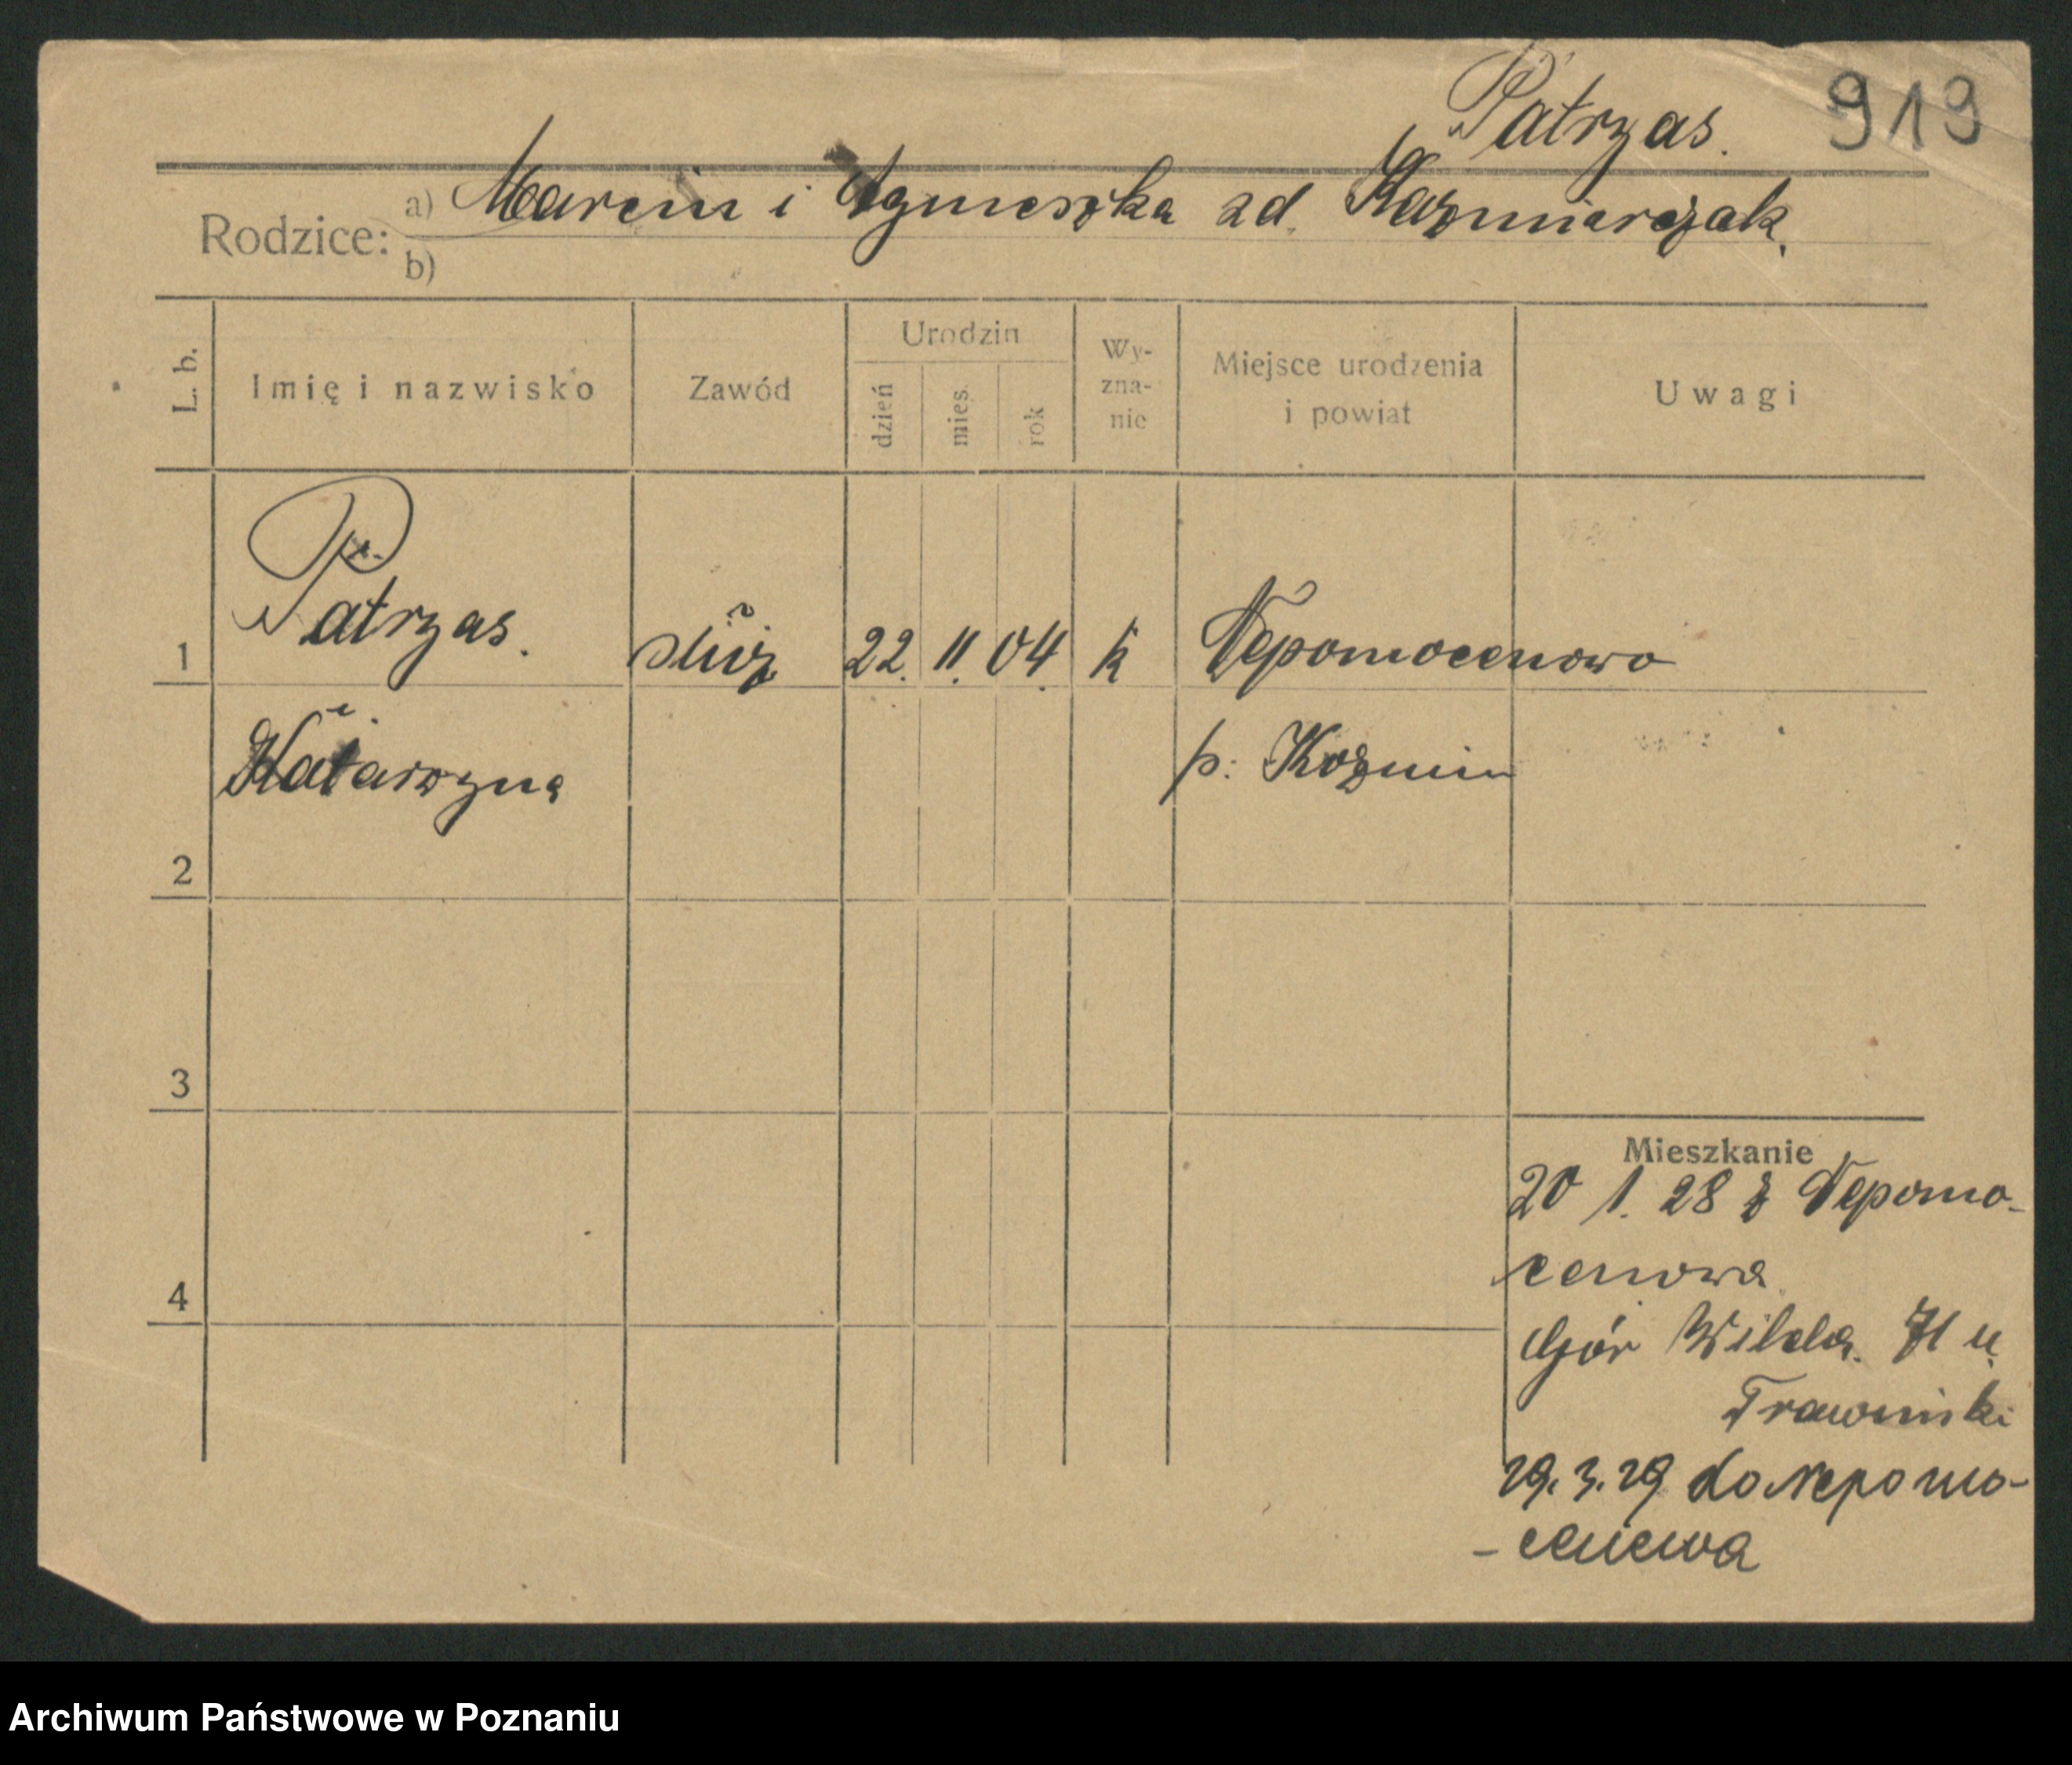 Patrzas. 919
Rodzice: a) Marcin i Agnieszka zd. Kazmierczak.
b)
L. b. Imię i nazwisko Zawód Urodzin dzień mies. rok Wy-zna-nie Miejsce urodzenia i powiat Uwagi
1 Patrzas. służ 22. 11. 04. k Nepomocenowo
Katarzyna p. Kozmin
2
3
Mieszkanie
20 1. 28 z Nepomo-
cenowa
4
Gór Wilda. 71 u.
Trawinski
29. 3. 29 do Nepomo-
- cenowa
Archiwum Państwowe w Poznaniu